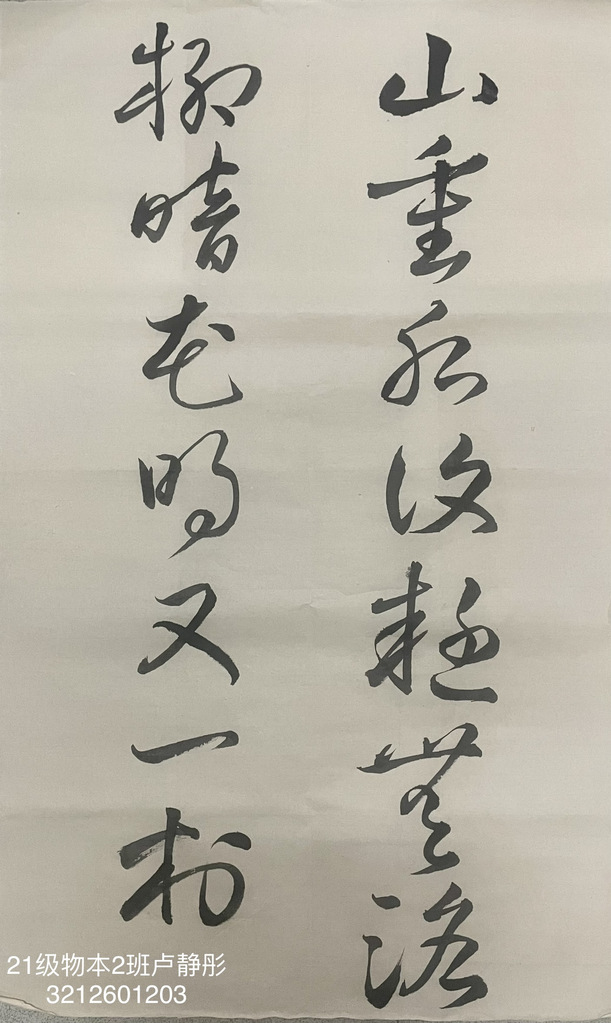 山重水復疑無路
柳暗花明又一村
21级物本2班卢静彤
3212601203